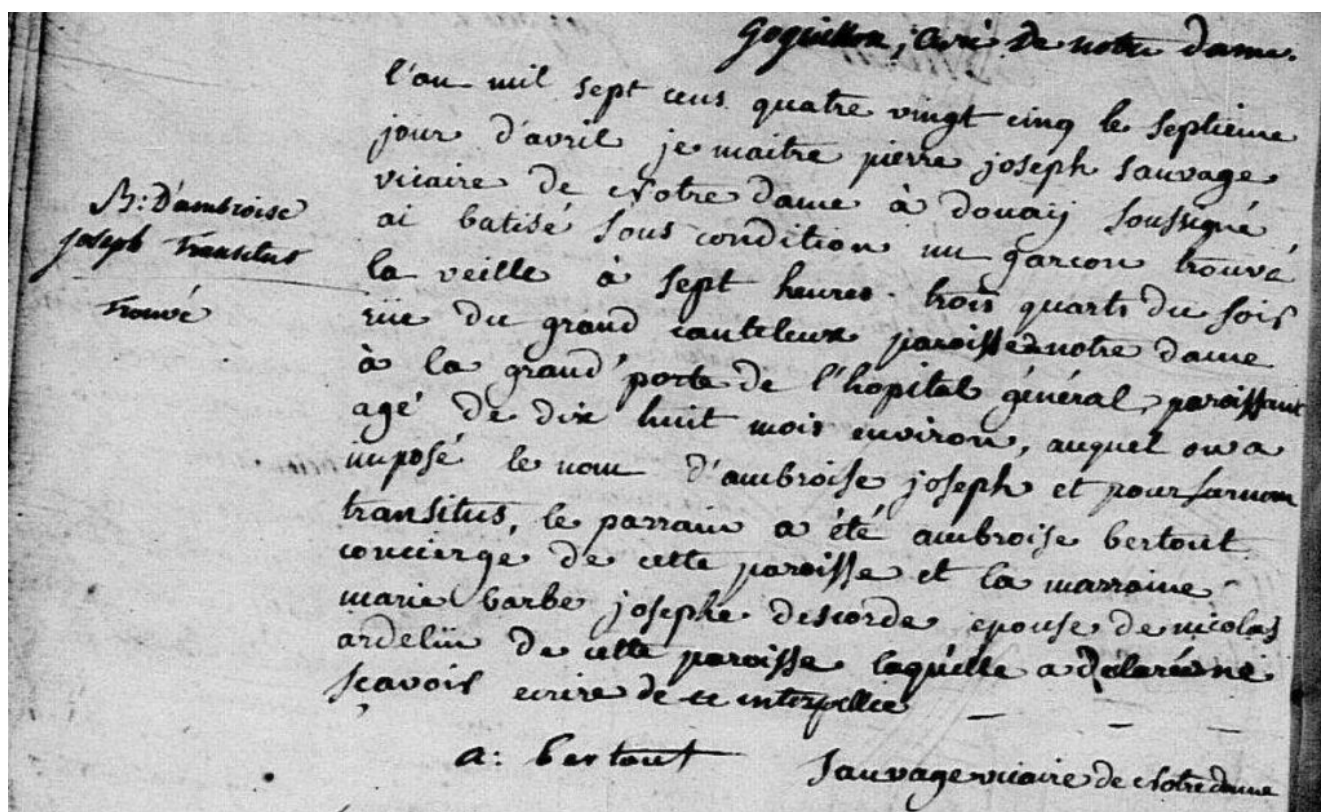 Goquillon, curé de notre dame.
l'an mil sept cens quatre vingt cinq le septieme
jour d'avril je maitre pierre joseph sauvage
vicaire de Notre dame à douaÿ soussigné
B: D'ambroise
joseph transitus
trouvé
ai batisé sous condition un garcon trouvé
la veille à sept heures trois quarts du soir
rüe du grand canteleux paroisse notre dame
à la grand'porte de l'hopital général, paroissant
agé de dix huit mois environ, auquel on a
imposé le nom d'ambroise joseph et pour surnom
transitus, le parrain a été ambroise bertout
concierge de cette paroisse et la marraine
marie barbe josephe descorde epouse de nicolas
ardelin de cette paroisse laquelle a declaré ne
sçavoir ecrire de ce interpellée
a: bertout sauvage vicaire de Notre dame